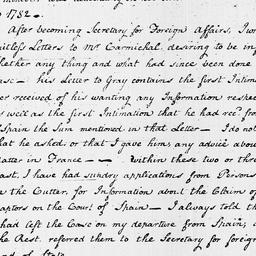 1782 —
After becoming Secretary for Foreign Affairs, I wr
uitless Letters to Mr Carmichal. desiring to be inf
hether any thing and what had since been done
ase — his Letter to Gray contains the first Intima
er received of his wanting any Information respec
s well as the first Intimation that he had rec.d from
Spain the Sum mentioned in that Letter — I do not
hat he asked, or that I gave him, any advice abou
atter in France — — within these two or three
ast. I have had sundry applications from Persons
n the Cutter, for Information about the Claim of
aptors on the Court of Spain — I always told th
had left the Case on my departure from Spain,
he Rest. referred them to the Secretary for foreig